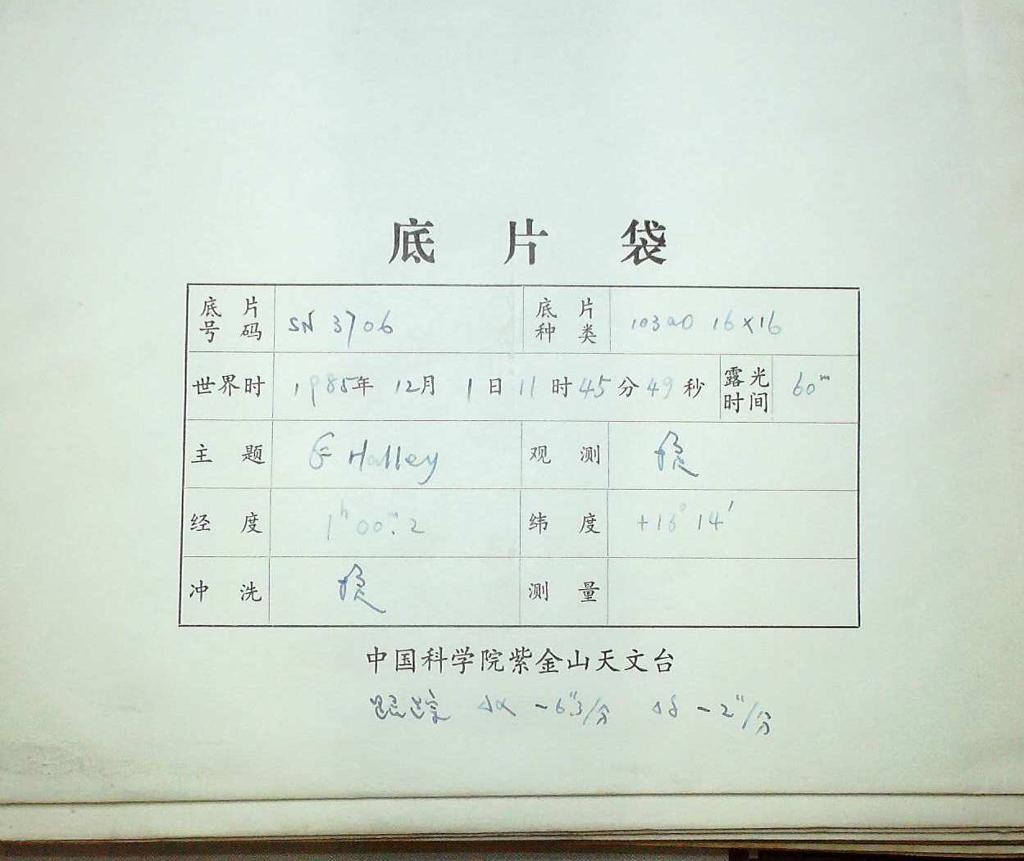 底片袋
底片号码 SN 3706 底片种类 103aO 16×16
世界时 1985年 12月 1日 11时45分49秒 露光时间 60ᵐ
主题 Halley 观测
经度 1ʰ00ᵐ.2 纬度 +16°14′
冲洗 测量
中国科学院紫金山天文台
跟踪 Δα -6″.3/分 Δδ -2″/分